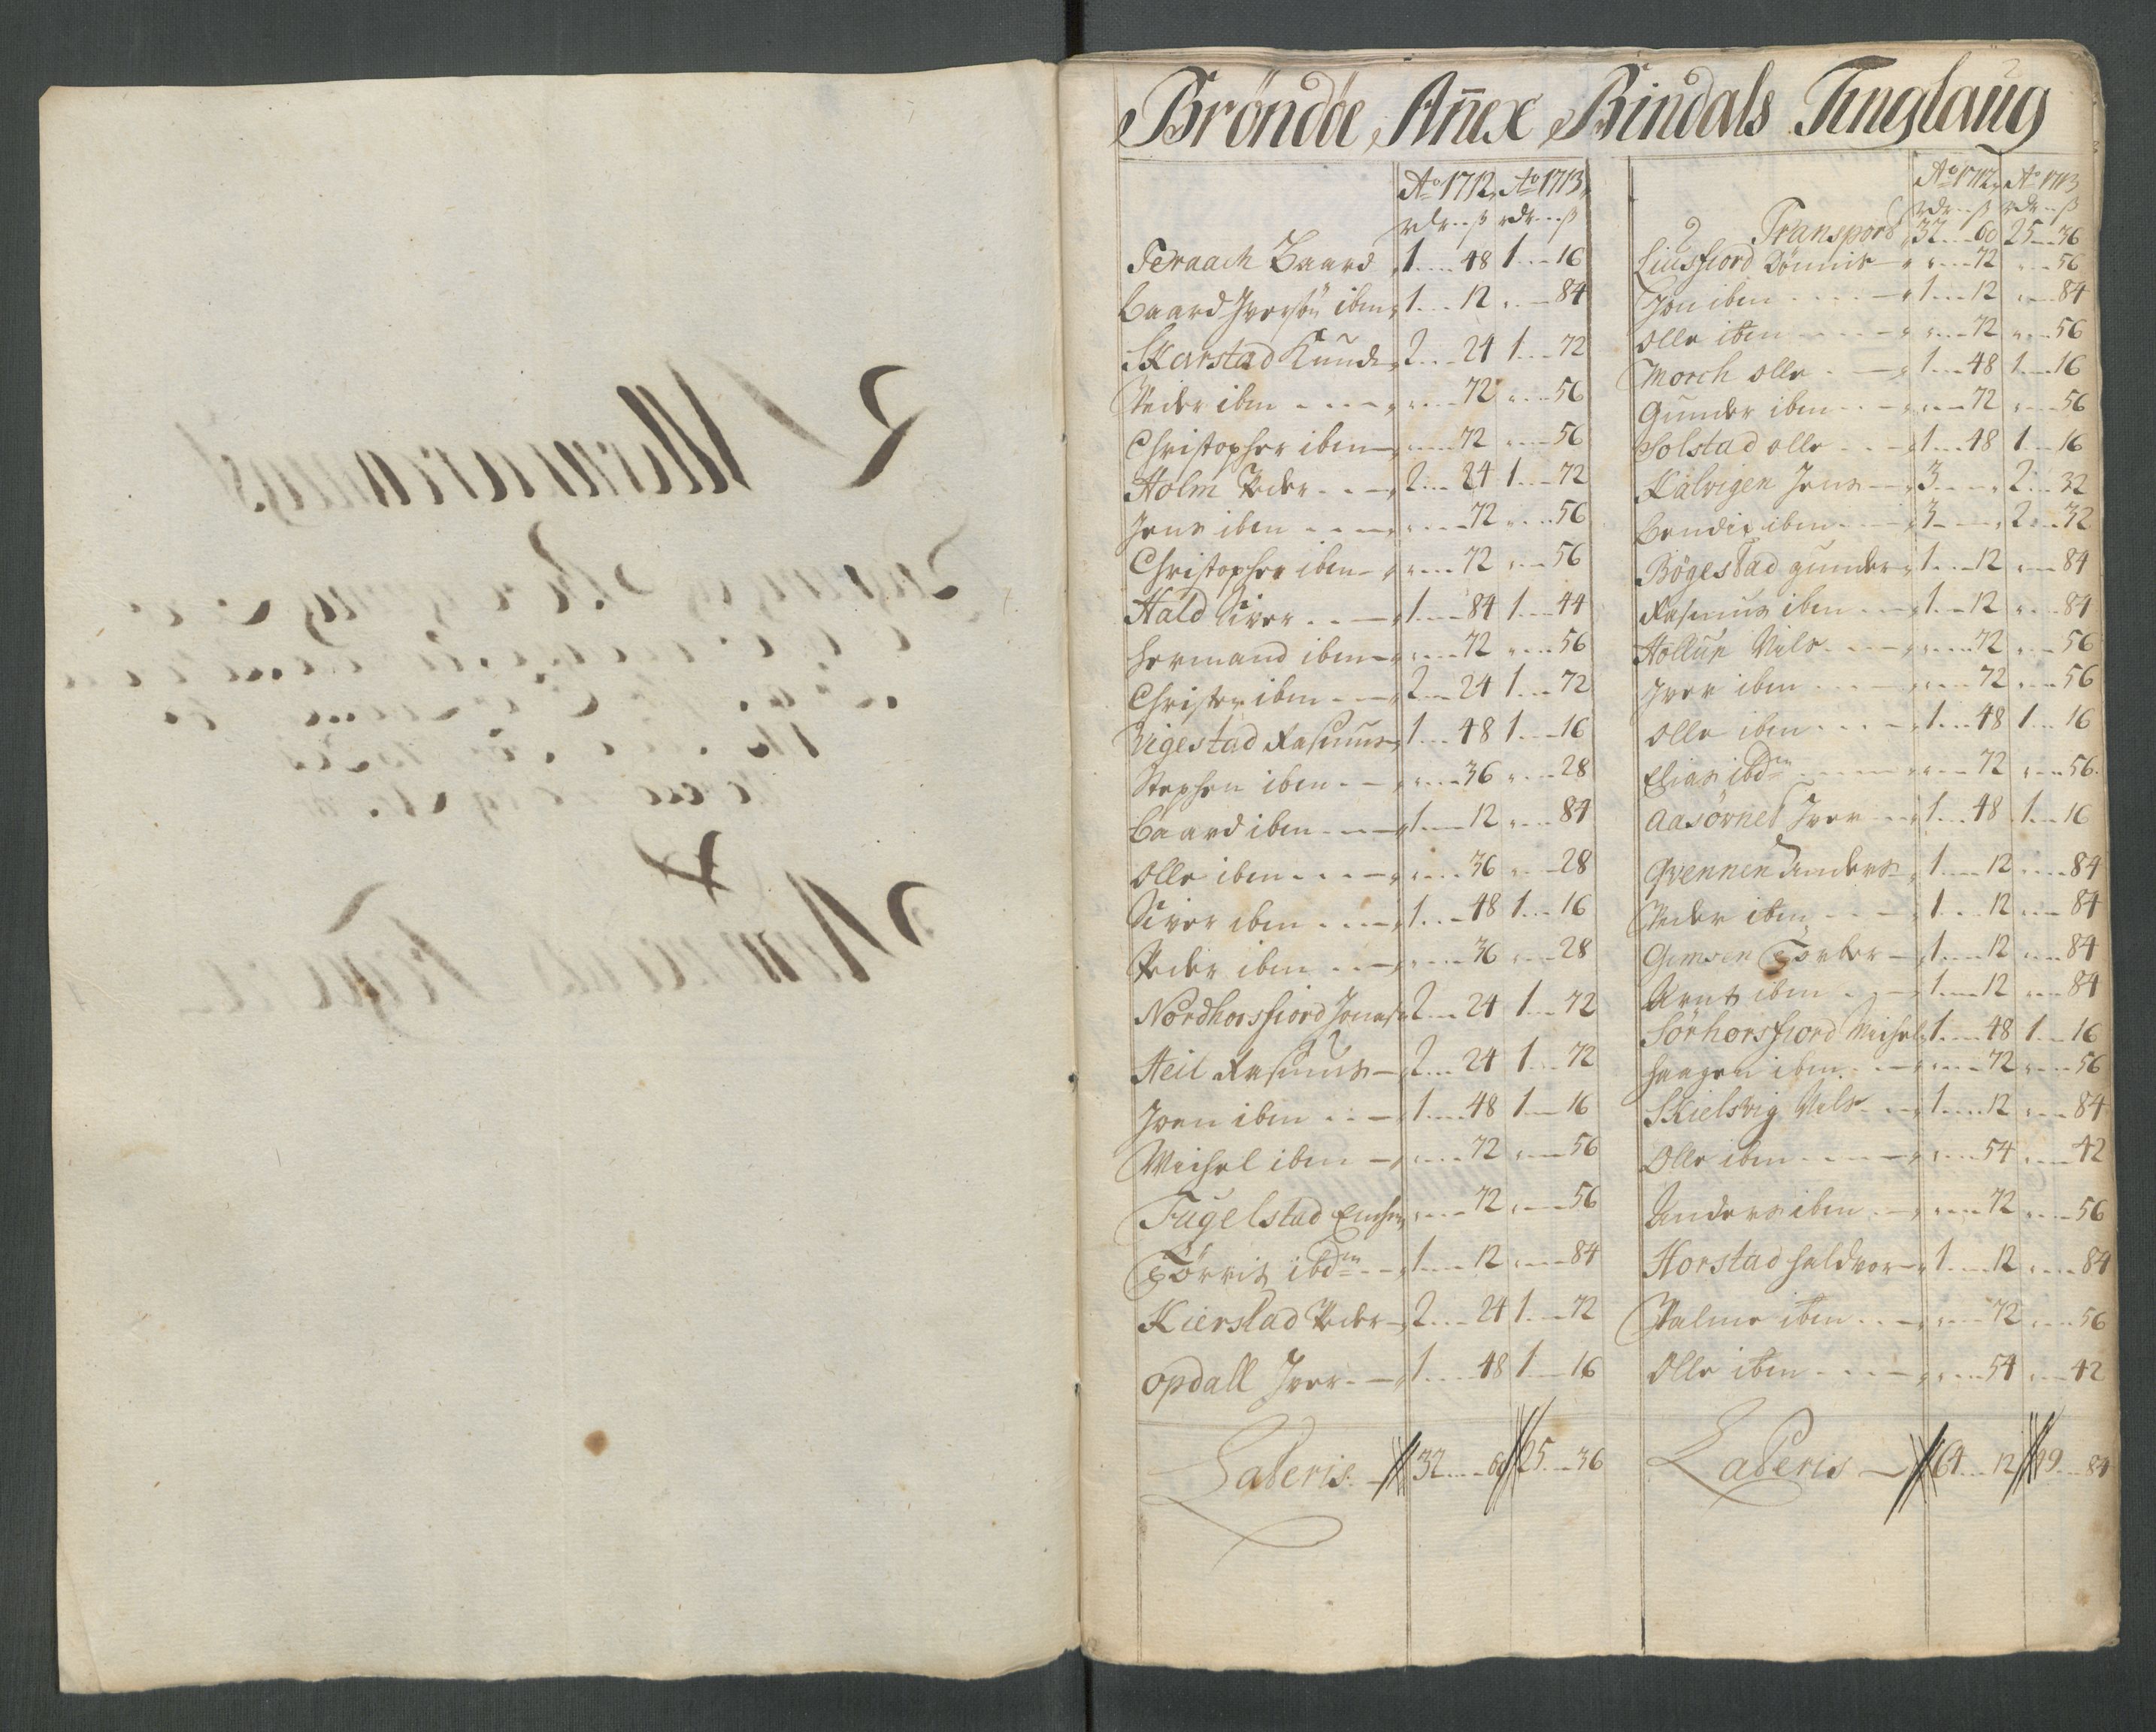 2
Bröndöe Añex Bindals Tinglaug
Ao 1712, Ao 1713,
rdr...ß rdr...ß
Teraach Baard 1....48 1....16
Baard Iversön ibm, 1....12 „....84
Skarstad Knud, 2....24 1....72
Peder ibm „....72 „....56
Christopher ibm „....72 „....56
Holm Peder 2....24 1....72
Jens ibm „....72 „....56
Christopher ibm „....72 „....56
Hald Siver 1....84 1....44
Hermand ibm „....72 „....56
Christen ibm 2....24 1....72
Vigestad Rasmus 1....48 1....16
Stephen ibm „....36 „....28
Baard ibm 1....12 „....84
Olle ibm „....36 „....28
Siver ibm 1....48 1....16
Peder ibm „....36 „....28
Nordhorsfiord Jonas 2....24 1....72
Heil Rasmus 2....24 1....72
Joen ibm 1....48 1....16
Michel ibm „....72 „....56
Fugelstad „....72 „....56
Törris ibdm 1....12 „....84
Kierstad Peder 2....24 1....72
Opdall Iver 1....48 1....16
Lateris 32....60 25....36
Ao 1712, Ao 1713
rdr...ß rdr...ß
Transport 32....60 25....36
Liusfiord Dönnis „....72 „....56
Jon ibm 1....12 „....84
Olle ibm „....72 „....56
Morch Olle 1....48 1....16
Gunder ibm „....72 „....56
Solstad Olle 1....48 1....16
Kalvigen Jens 3....„ 2....32
Bendix ibm 3....„ 2....32
Bögestad Gunder 1....12 „....84
Rasmus ibm 1....12 „....84
Hollup Nils „....72 „....56
Iver ibm „....72 „....56
Olle ibm 1....48 1....16
Elias ibdm „....72 „....56.
Aasörnet Iver 1....48 1....16
Qvennen Anders 1....12 „....84
Peder ibm 1....12 „....84
Gimsen Torber 1....12 „....84
Arnt ibm 1....12 „....84
Sörhorsfiord Michel 1....48 1....16
Haagen ibm „....72 „....56
Skielsvig Nils 1....12 „....84
Olle ibm „....54 „....42
Anders ibm „....72 „....56
Horstad Haldvor 1....12 „....84
Palme ibm „....72 „....56
Olle ibm „....54 „....42
Lateris 64....12 49....84